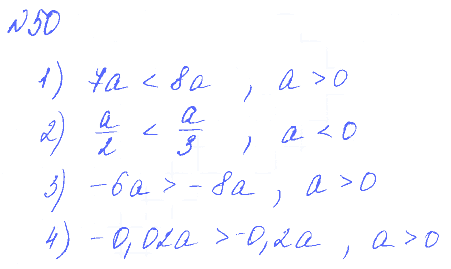 №50
1) 7a < 8a , a > 0
2) a/2 < a/3 , a < 0
3) -6a > -8a , a > 0
4) -0,02a > -0,2a , a > 0